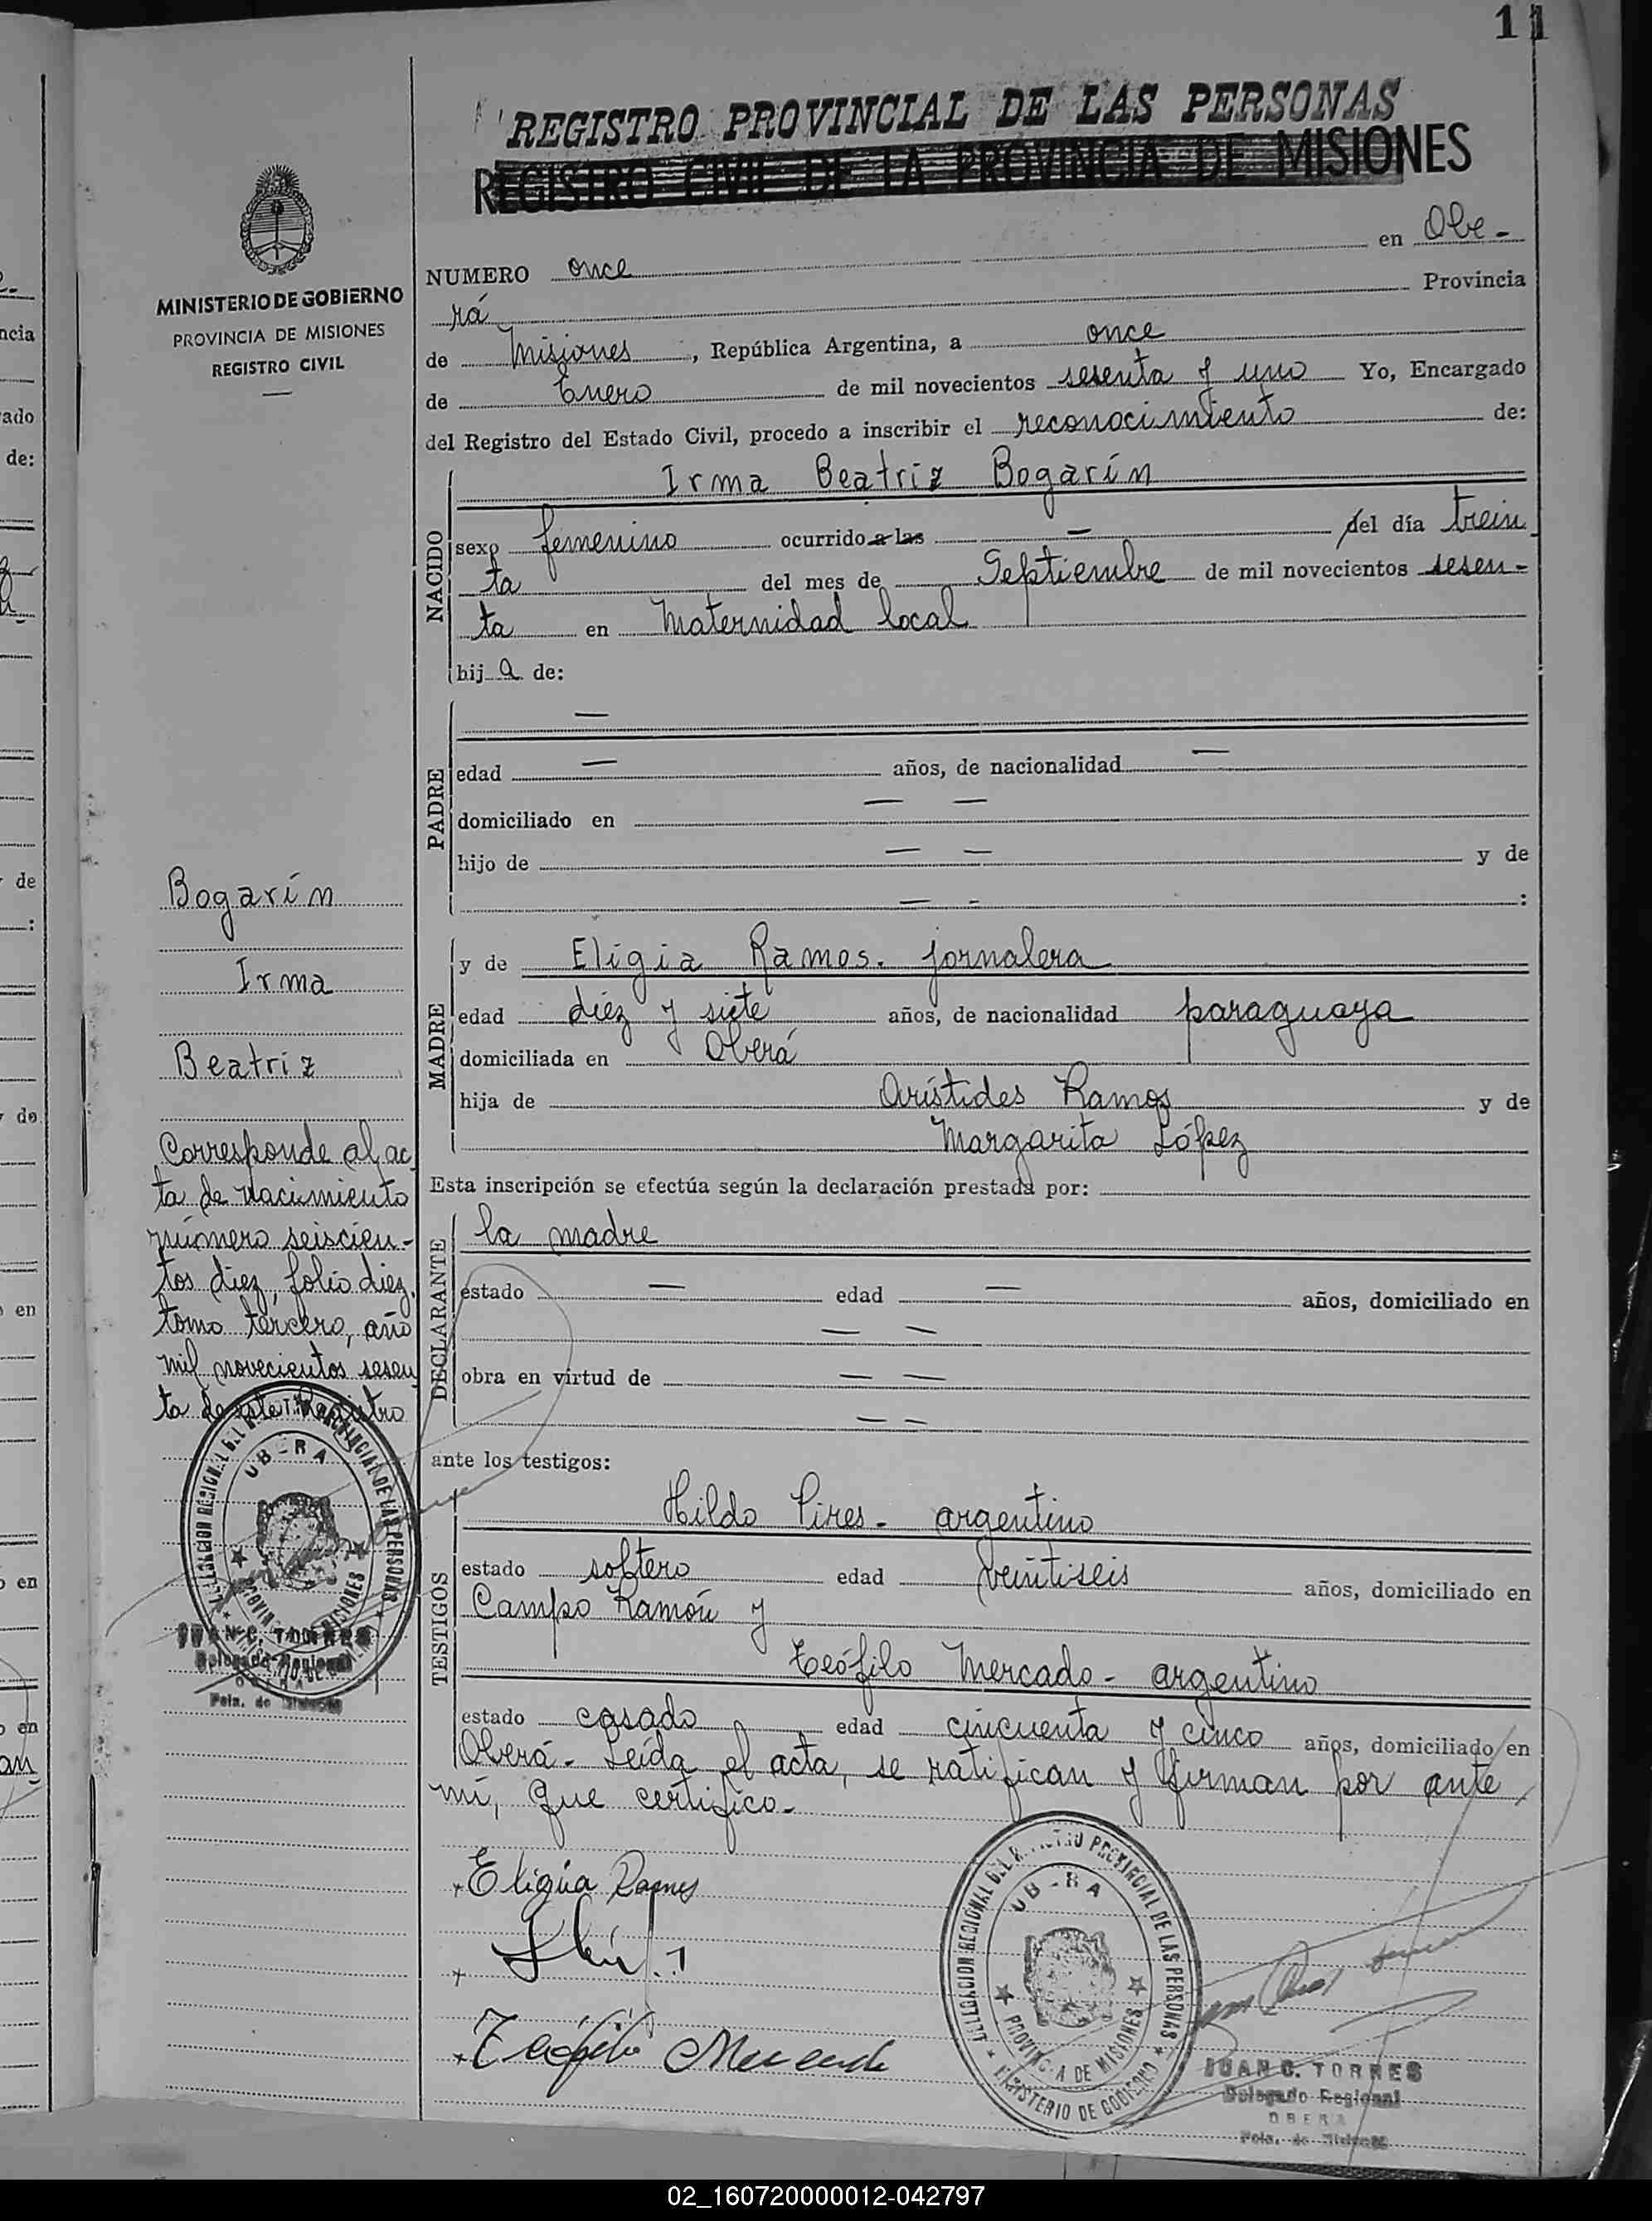 11
REGISTRO PROVINCIAL DE LAS PERSONAS
REGISTRO CIVIL DE LA PROVINCIA DE MISIONES
MINISTERIO DE GOBIERNO
PROVINCIA DE MISIONES
REGISTRO CIVIL
NUMERO once en Obe-
rá Provincia
de Misiones, República Argentina, a once
de Enero de mil novecientos sesenta y uno Yo, Encargado
del Registro del Estado Civil, procedo a inscribir el reconocimiento de:
NACIDO
Irma Beatriz Bogarín
sexo femenino ocurrido a las — del día trein
ta del mes de Septiembre de mil novecientos sesen-
ta en Maternidad local
hij a de:
PADRE
—
edad — años, de nacionalidad —
domiciliado en — —
hijo de — — y de
— - :
MADRE
y de Eligia Ramos. jornalera
edad diez y siete años, de nacionalidad paraguaya
domiciliada en Oberá
hija de Arístides Ramos y de
Margarita López
Esta inscripción se efectúa según la declaración prestada por:
DECLARANTE
la madre
estado — edad — años, domiciliado en
— —
obra en virtud de — —
— —
ante los testigos:
TESTIGOS
Hildo Pires - argentino
estado soltero edad veintiseis años, domiciliado en
Campo Ramón y
Teófilo Mercado - argentino
estado casado edad cincuenta y cinco años, domiciliado en
Oberá - Leída el acta, se ratifican y firman por ante
mí, que certifico.-
Eligia Ramos
Teófilo Mercado
DELEGACION REGIONAL DEL REGISTRO PROVINCIAL DE LAS PERSONAS
OBERA
PROVINCIA DE MISIONES
MINISTERIO DE GOBIERNO
JUAN C. TORRES
Delegado Regional
OBERA
Pcia. de Misiones
Bogarín
Irma
Beatriz
Corresponde al ac
ta de nacimiento
número seiscien-
tos diez, folio diez,
tomo tercero, año
mil novecientos sesen
ta de este Registro
DELEGACION REGIONAL DEL REGISTRO PROVINCIAL DE LAS PERSONAS
OBERA
PROVINCIA DE MISIONES
JUAN C. TORRES
Delegado Regional
OBERA
Pcia. de Misiones
02_160720000012-042797